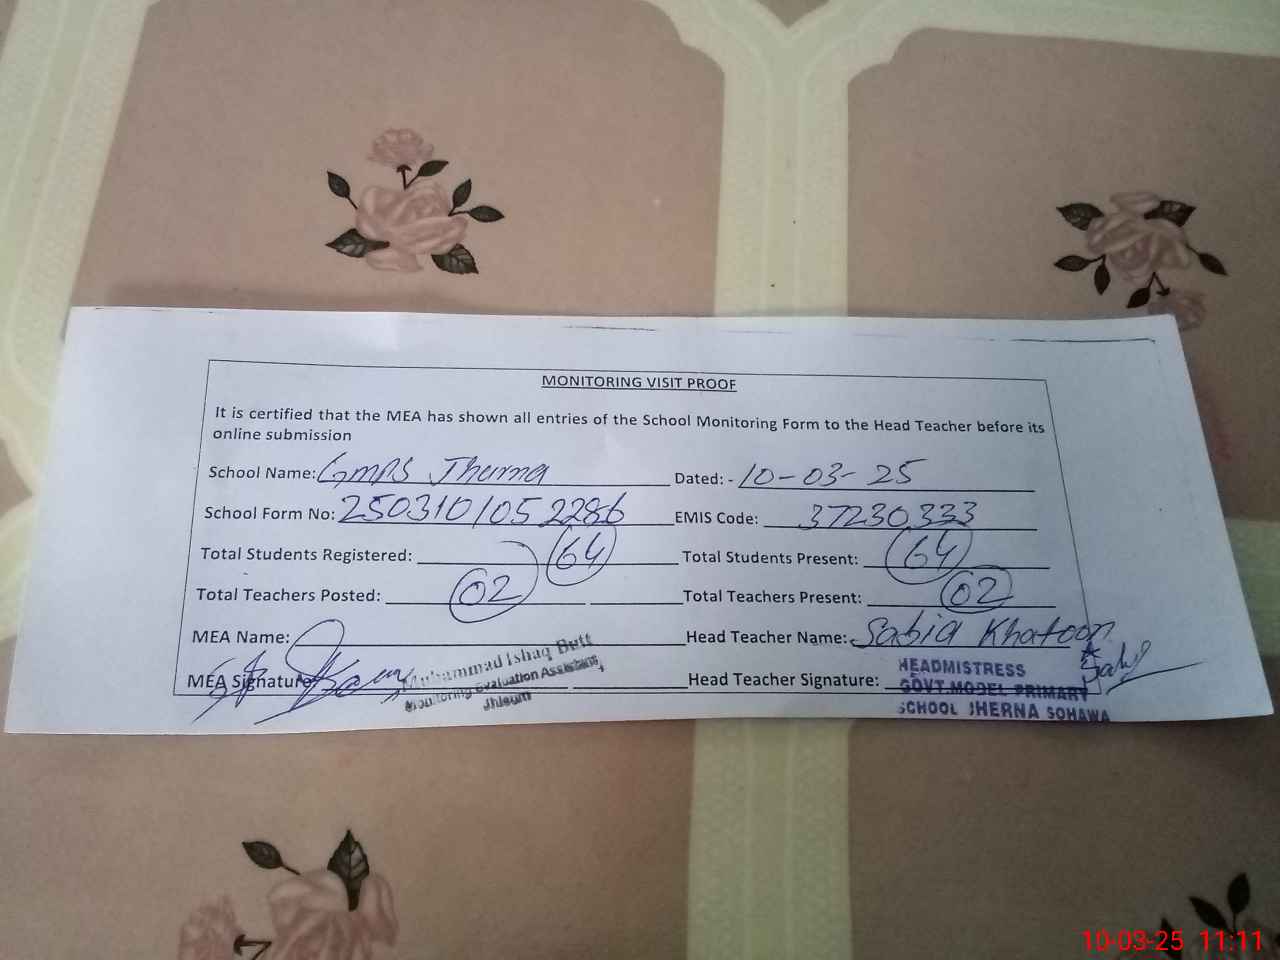 MONITORING VISIT PROOF
It is certified that the MEA has shown all entries of the School Monitoring Form to the Head Teacher before its
online submission
School Name: GMPS Jherna Dated: - 10-03-25
School Form No: 2503101052286 EMIS Code: 37230333
Total Students Registered: 64 Total Students Present: 64
Total Teachers Posted: 02 Total Teachers Present: 02
MEA Name: Head Teacher Name: Sabia Khatoon
MEA Signature Head Teacher Signature:
Muhammad Ishaq Butt
Monitoring Evaluation Assistant
Jhleum
HEADMISTRESS
GOVT.MODEL PRIMARY
SCHOOL JHERNA SOHAWA
10-03-25 11:11